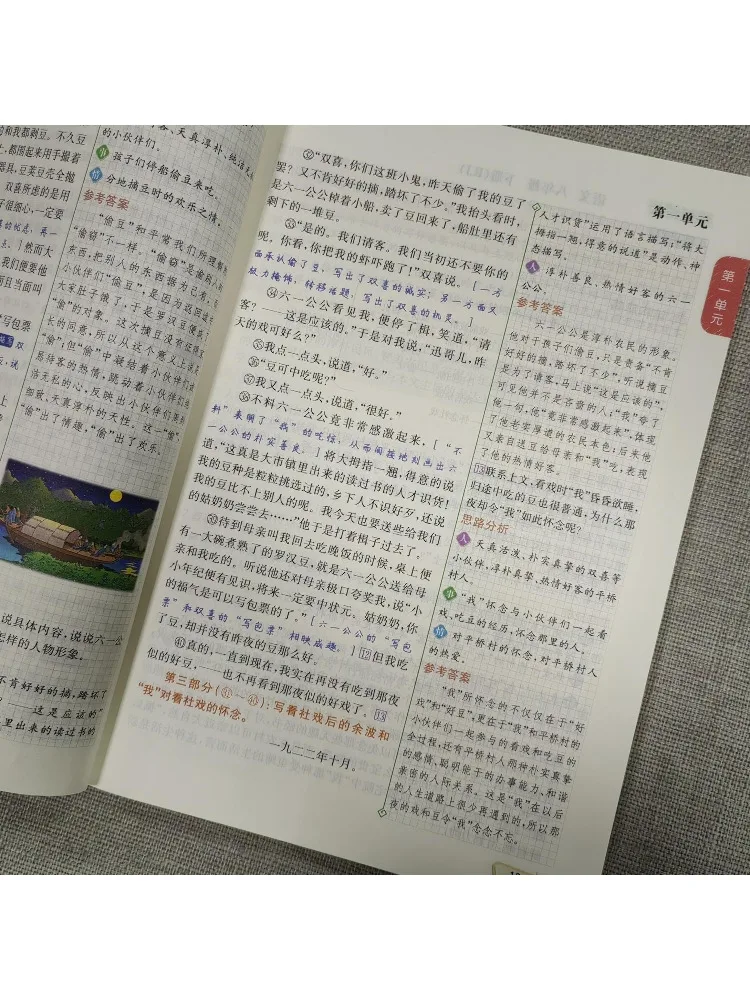 和我都剥豆。不久豆
都围起来用手撮着
器具,豆荚豆壳全抛
双喜所虑的是用
子很细心,一定要
]然而大
我们便要他
而且当面叫
的小伙伴们。
事 孩子们停船偷豆来吃。
情 分地摘豆时的欢乐之情。
参考答案
说具体内容,说说六一公
怎样的人物形象。
肯好好的摘,踏坏了
这是应该的”
里出来的读过书的
第一单元
第一单元
㉜“双喜,你们这班小鬼,昨天偷了我的豆了
罢?又不肯好好的摘,踏坏了不少。”我抬头看时,
是六一公公棹着小船,卖了豆回来了,船肚里还有
剩下的一堆豆。
㉝“是的。我们请客。我们当初还不要你的
呢。你看,你把我的虾吓跑了!”双喜说。[一方
面承认偷了豆,写出了双喜的诚实;另一方面又
极力掩饰,转移话题,写出了双喜的机灵。]
㉞六一公公看见我,便停了楫,笑道,“请
客?——这是应该的。”于是对我说,“迅哥儿,昨
天的戏可好么?”
㉟我点一点头,说道,“好。”
㊱“豆可中吃呢?”
㊲我又点一点头,说道,“很好。”
㊳不料六一公公竟非常感激起来,[“不
料”表明了“我”的吃惊,从而间接地刻画出六
一公公的朴实善良。]将大拇指一翘,得意的说
道,“这真是大市镇里出来的读过书的人才识货!
我的豆种是粒粒挑选过的,乡下人不识好歹,还说
我的豆比不上别人的呢。我今天也要送些给我们
的姑奶奶尝尝去……”他于是打着楫子过去了。
㊴待到母亲叫我回去吃晚饭的时候,桌上便
有一大碗煮熟了的罗汉豆,就是六一公公送给母
亲和我吃的。听说他还对母亲极口夸奖我,说“小
小年纪便有见识,将来一定要中状元。姑奶奶,你
的福气是可以写包票的了。”[六一公公的“写包
票”和双喜的“写包票”相映成趣。]⑫但我吃
了豆,却并没有昨夜的豆那么好。
㊵真的,一直到现在,我实在再没有吃到那夜
似的好豆,——也不再看到那夜似的好戏了。⑬
第三部分(㉛—㊵):写看社戏后的余波和
“我”对看社戏的怀念。
一九二二年十月。
人才识货”运用了语言描写;“将大
拇指一翘,得意的说道”是动作、神
态描写。
人 淳朴善良、热情好客的六一
公公。
参考答案
六一公公是淳朴农民的形象。
他对于孩子们偷豆,只是责备“不肯
好好的摘,踏坏了不少”,听说摘豆
是为了请客,马上说“这是应该的”,
可见他并不是吝啬的人;“我”夸了
他一句,他“竟非常感激起来”,体现
了他老实厚道的农民本色;后来他
又亲自送豆给母亲和“我”吃,表现
了他的热情好客。
⑬联系上文,看戏时“我”昏昏欲睡,
归途中吃的豆也很普通,为什么那
夜却令“我”如此怀念呢?
思路分析
人 天真活泼、朴实真挚的双喜等
小伙伴,淳朴真挚、热情好客的平桥
村人。
事 “我”怀念与小伙伴们一起看
戏、吃豆的经历,怀念那里的人。
情 对平桥村的怀念,对平桥村人
的热爱。
参考答案
“我”所怀念的不仅仅在于“好
戏”和“好豆”,更在于“我”和平桥村的
小伙伴们一起参与的看戏和吃豆的
全过程,还有平桥村人那种朴实真挚
的感情、聪明能干的办事能力、和谐
亲密的人际关系。这是“我”在以后
的人生道路上很少再遇到的,所以那
夜的戏和豆令“我”念念不忘。